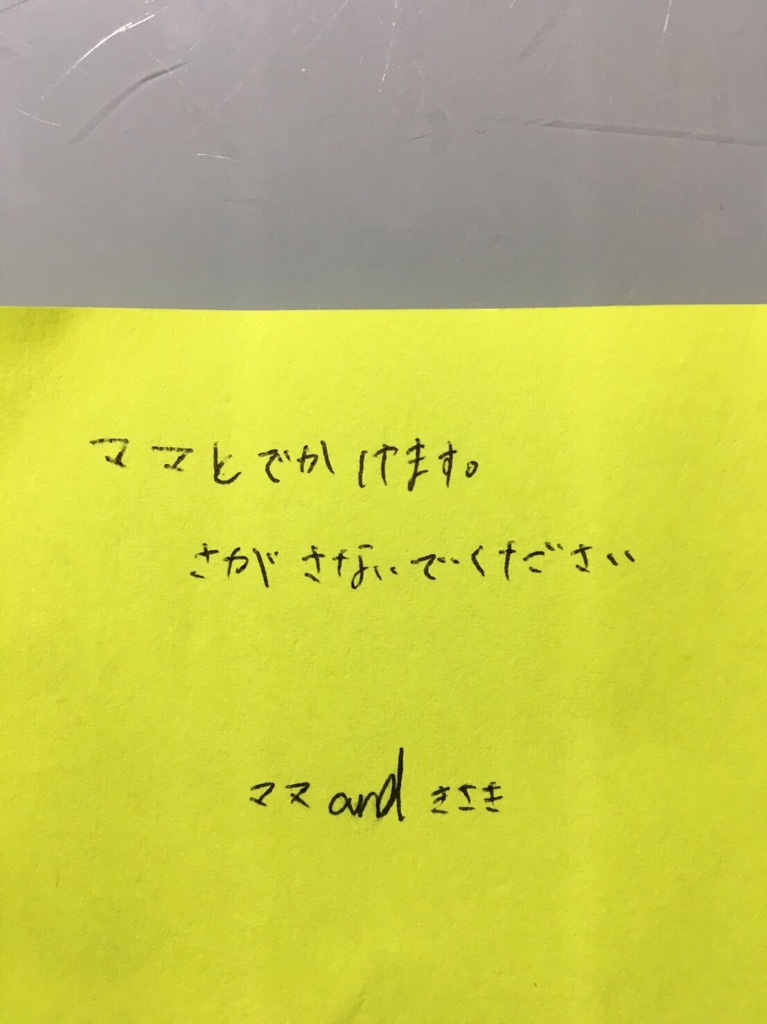 ママとでかけます。
さがさないでください
ママ and きさき